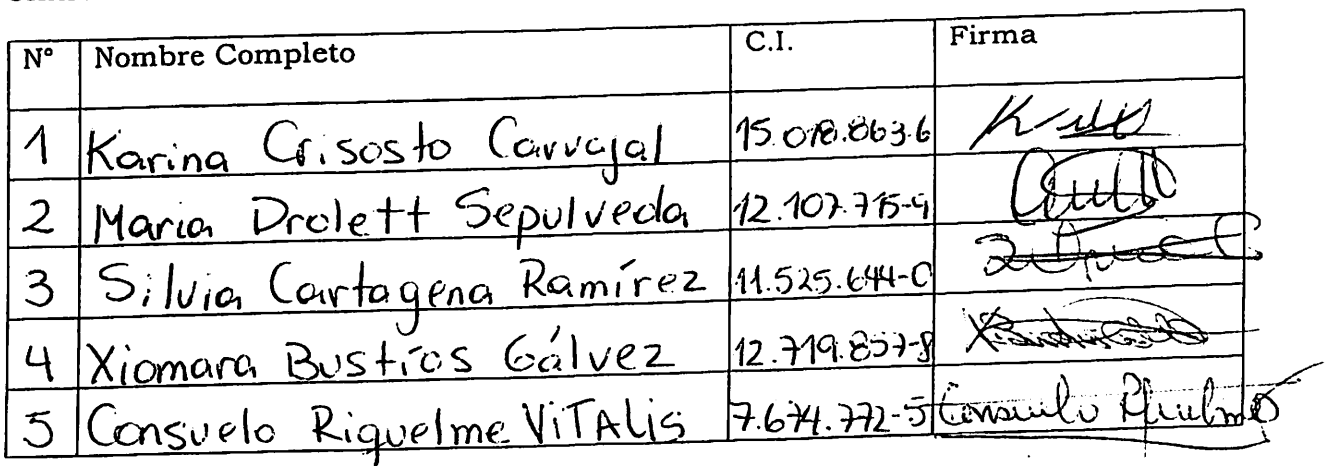 N° Nombre Completo C.I. Firma
1 Karina Crisosto Carvajal 15.018.863-6
2 Maria Drolett Sepulveda 12.107.715-9
3 Silvia Cartagena Ramírez 11.525.644-0
4 Xiomara Bustíos Gálvez 12.719.857-8
5 Consuelo Riquelme ViTALis 7.674.772-5 Consuelo Riquelme